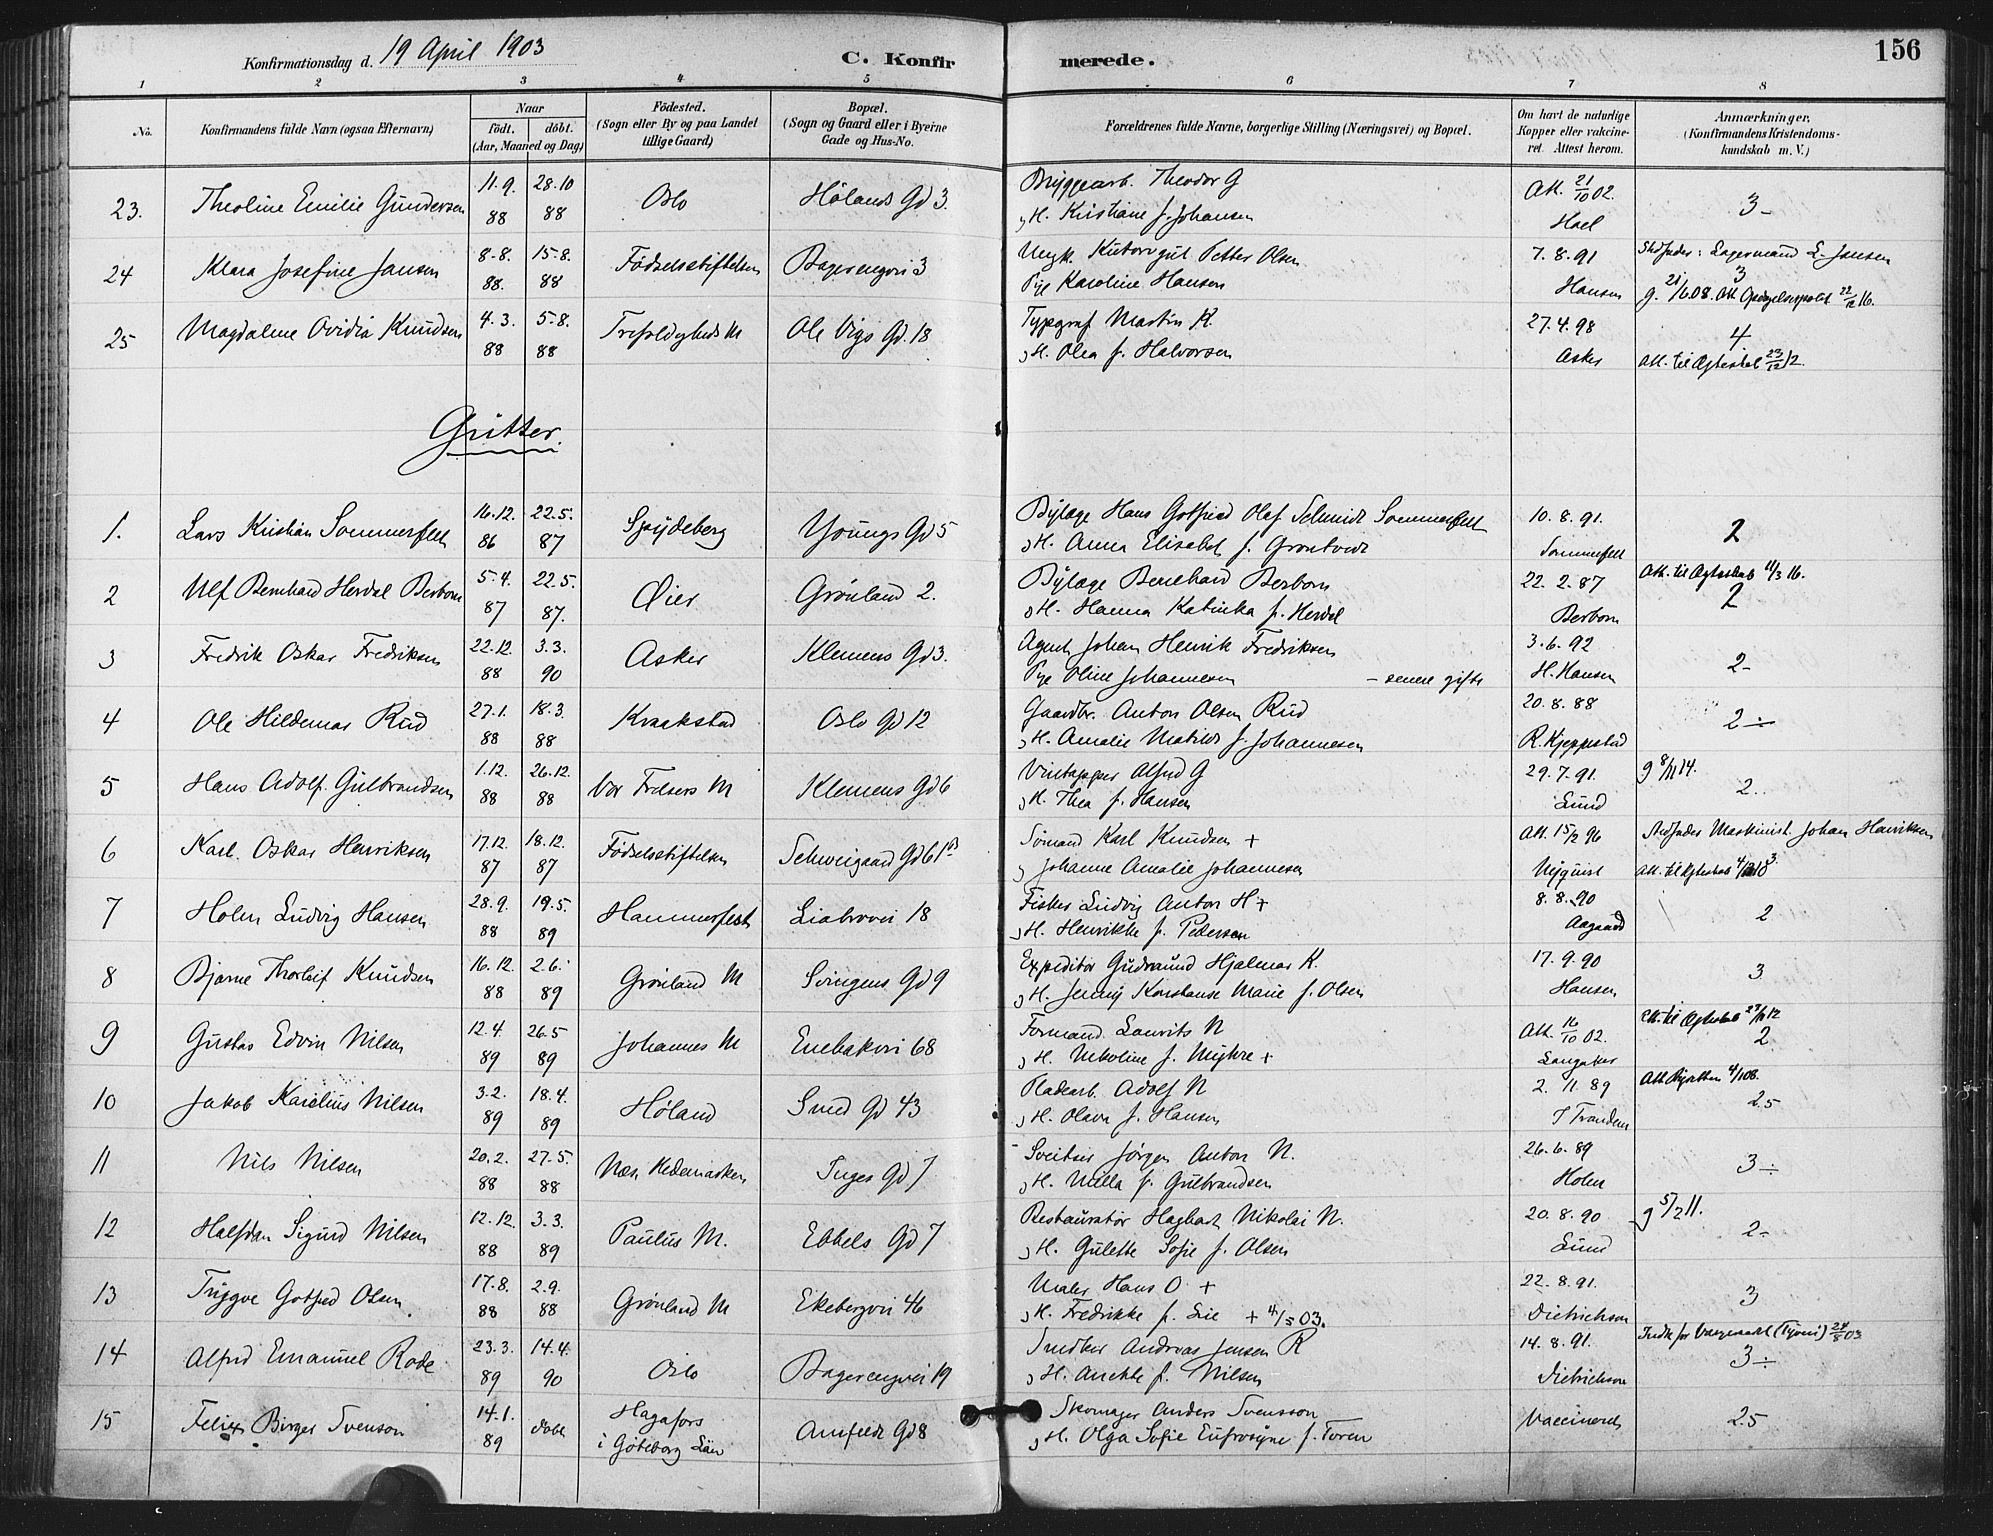 156
Konfirmationsdag d. 19 April 1903
C. Konfirmerede.
1 2 3 4 5 6 7 8
No.
Konfirmandens fulde Navn (ogsaa Efternavn)
Naar
födt. döbt.
(Aar, Maaned og Dag)
Födested.
(Sogn eller By og paa Landet
tillige Gaard)
Bopæl.
(Sogn og Gaard eller i Byerne
Gade og Hus-No.
Forældrenes fulde Navne, borgerlige Stilling (Næringsvei) og Bopæl.
Om havt de naturlige
Kopper eller vakcine-
ret. Attest herom.
Anmærkninger.
(Konfirmandens Kristendoms-
kundskab m. V.)
23. Theoline Emilie Gundersen 11.9. 88 28.10 88 Oslo Hølands Gd 3. Bryggearb. Theodor G Att. 21/10 02. 3-
H. Kristiane f. Johansen Hoel
24 Klara Josefine Jansen 8.8. 88. 15.8. 88 Fødselsstiftelsen Bagerengvei 3 Ungk. Petter Olsen 7.8.91 Stedfader: Lagermand L. Jansen
Pige Karoline Hansen Hansen 3
25 Magdalene Ovidia Knudsen 4.3. 88 5.8. 88 Trefoldigheds M Ole Vigs Gd. 18 Typograf Martin K. 27.4.98 4
H. Olea f. Halvorsen Asker Att. til Ægteskab 23/12 12.
Gutter.
1. Lars Kristian Sommerfelt 16.12. 86 22.5. 87 Spydeberg Youngs Gd 5 Bylæge Hans Gotfried Olaf Schmidt Sommerfelt 10.8.91. 2
H. Anna Elisabet f. Grøntvedt Sommerfelt
2 Ulf Bernhard Herdal Berbom 5.4. 87 22.5. 87. Øier Grønland 2. Bylæge Bernhard Berbom 22.2.87 Att. til Ægteskab 11/3 16.
H. Hanna Katinka f. Herdal Berbom 2
3 Fredrik Oskar Fredriksen 22.12. 88 3.3. 90 Asker Klemens Gd 3. Agent Johan Henrik Fredriksen 3.6.92 2-
Pige Oline Johannesen - senere gifte H. Hansen
4 Ole Hildemar Rud 27.1. 88 18.3. 88 Kraakstad Oslo Gd 12 Gaardbr. Anton Olsen Rud 20.8.88 2÷
H. Amalie Matilde f. Johannesen R. Kjeppestad
5 Hans Adolf Gulbrandsen 1.12. 88 26.12. 88 Vor Frelsers M Klemens Gd 6 Vintapper Alfred G 29.7.91. g 8/11 14.
H. Thea f. Hansen Lund 2.
6 Karl Oskar Henriksen 17.12. 87 18.12. 87 Fødselsstiftelsen Schweigaard Gd 61 B Sømand Karl Knudsen + Att. 15/2 96 Stedfader Maskinist Johan Henriksen
Johanne Amalie Johannesen Nyquist Att. til Ægteskab 3.
7 Holm Ludvig Hansen 28.9. 88 19.5. 89 Hammerfest Liabrovei 18 Fisker Ludvig Anton H + 8.8.90 2
H. Henrikke f. Pedersen Aagaard
8 Bjarne Thorleif Knudsen 16.12. 88 2.6. 89 Grønland M Svingens Gd 9 Expeditør Gudmund Hjalmar K. 17.9.90 3
H. Jenny Konstanse Marie f. Olsen Hansen
9 Gustav Edvin Nilsen 12.4. 89 26.5 89 Johannes M Enebakvei 68 Formand Laurits N Att. 16/10 02. Att. til Ægteskab 27/11 12
H. Nikoline f. Myhre + Langaker 2
10 Jakob Karelius Nilsen 3.2. 89 18.4. 89 Høland Smed Gd 43 Pladearb. Adolf N 2.11.89
H. Olava f. Hansen J Trandem 2.5
11 Nils Nilsen 20.2. 88 27.5. 88 Næs, Hedemarken Inges Gd 7 Sveitser Jørgen Anton N. 26.6.89 3÷
H. Milla f. Gulbrandsen Holm
12 Halfdan Sigurd Nilsen 12.12. 88 3.3. 89 Paulus M. Ebbels Gd 7 Restauratør Hagbart Nikolai N. 20.8.90 g 5/2 11.
H. Gulette Sofie f. Olsen Lund 2-
13 Trygve Gotfred Olsen 17.8. 88 2.9. 88 Grønland M Ekebergvei 46 Maler Hans O + 22.8.91. 3
H. Fredrikke f. Lie + 4/5 03. Dietrichson
14 Alfred Emanuel Rode 23.3. 89 14.4. 90 Oslo Bagerengvei 19 Snedker Andreas Jensen R 14.8.91. Indk. for Vergeraadet (Tyveri) 24/8 03
H. Anette f. Nilsen Dietrichson 3÷
15 Felix Birger Svenson 14.1. 89 døbt Hagafors i Göteborg Län Arnfeldt Gd 8 Skomager Anders Svensson Vaccineret 2.5
H. Olga Sofie Eufrosyne f. Toren